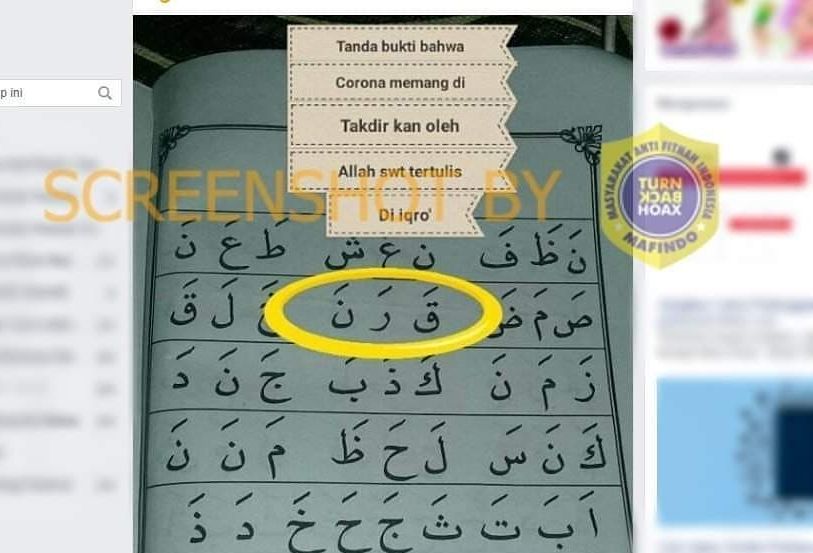 p ini
Tanda bukti bahwa
Corona memang di
Takdir kan oleh
Allah swt tertulis
Di iqro'
SCREENSHOT BY
MASYARAKAT ANTI FITNAH INDONESIA
TURN
BACK
HOAX
MAFINDO
نَ ظَ فَ نَ عَ شَ طَ عَ نَ
صَ مَ ضَ قَ رَ نَ خَ لَ قَ
زَ مَ نَ كَ ذَ بَ جَ نَ دَ
كَ نَ سَ لَ حَ ظَ مَ نَ نَ
اَ بَ تَ ثَ جَ حَ خَ دَ ذَ